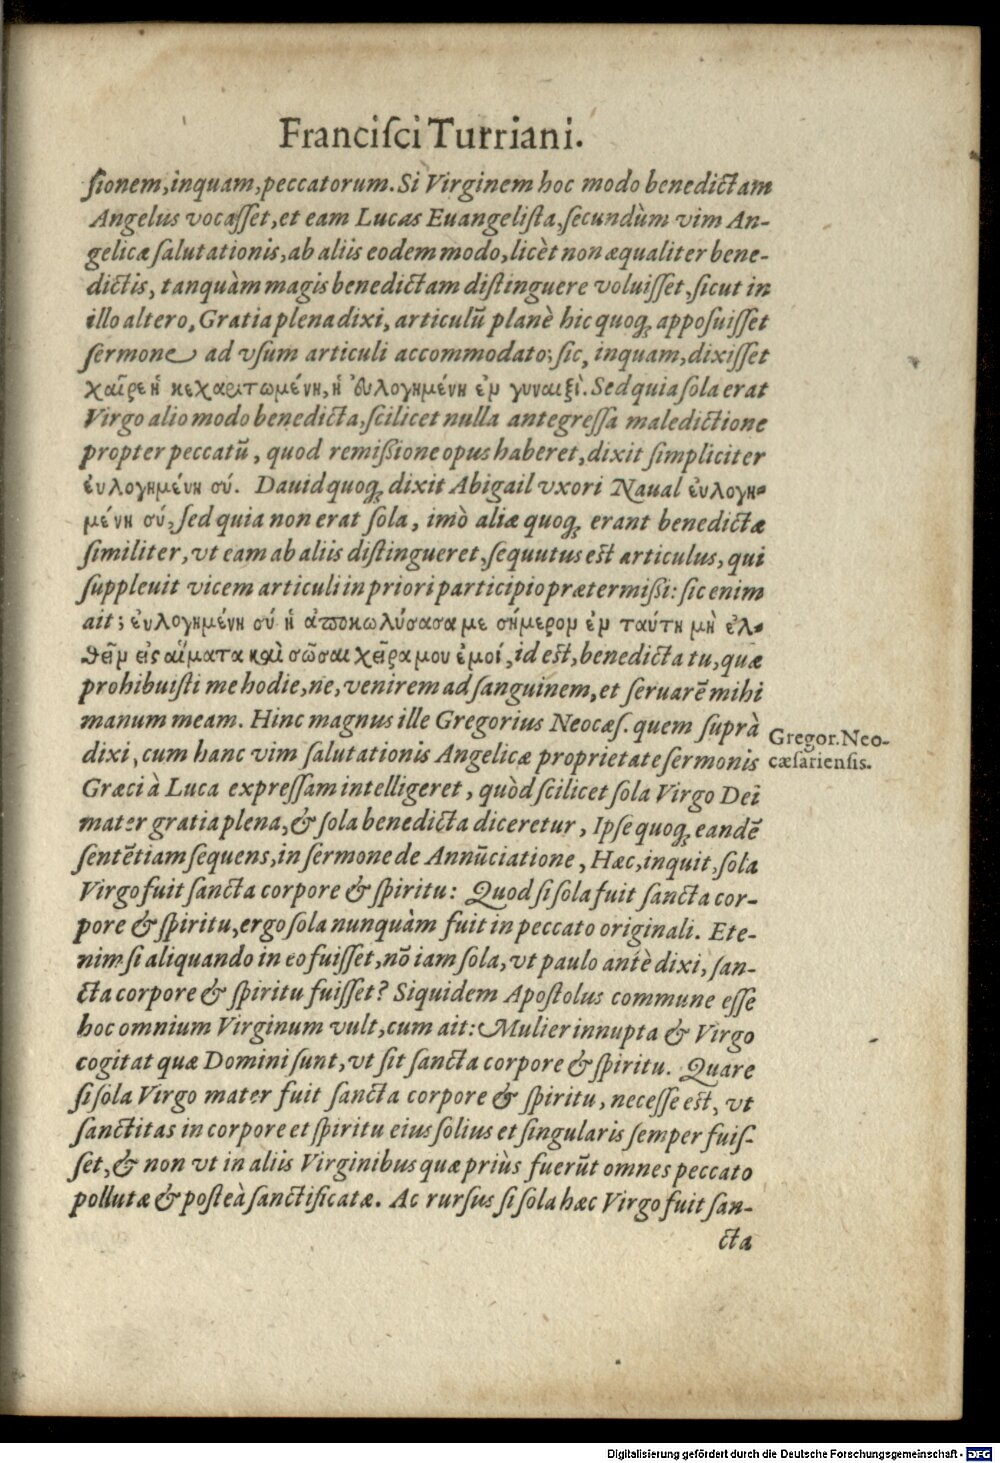 Franciſci Turriani.
ſionem, inquam, peccatorum. Si Virginem hoc modo benedictam
Angelus vocaſſet, et eam Lucas Euangeliſta, ſecundùm vim An-
gelicæ ſalutationis, ab aliis eodem modo, licèt non æqualiter bene-
dictis, tanquàm magis benedictam diſtinguere voluiſſet, ſicut in
illo altero, Gratia plena dixi, articulũ planè hic quoq; appoſuiſſet
ſermone ad vſum articuli accommodato; ſic, inquam, dixiſſet
χαῖρε ἡ κεχαριτωμένη, ἡ ἐυλογημένη ἐν γυναιξὶ. Sed quia ſola erat
Virgo alio modo benedicta, ſcilicet nulla antegreſſa maledictione
propter peccatũ, quod remiſſione opus haberet, dixit ſimpliciter
ἐυλογημένη σύ. Dauid quoq; dixit Abigail vxori Naual ἐυλογη-
μένη σύ, ſed quia non erat ſola, imò aliæ quoq; erant benedictæ
ſimiliter, vt eam ab aliis diſtingueret, ſequutus eſt articulus, qui
ſuppleuit vicem articuli in priori participio prætermiſſi: ſic enim
ait; ἐυλογημένη σύ ἡ ἀποκωλύσασα με σήμερον ἐν ταύτη μὴ ἐλ-
θεῖν εἰς αἵματα καὶ σῶσαι χεῖρα μου ἐμοί, id eſt, benedicta tu, quæ
prohibuiſti me hodie, ne, venirem ad ſanguinem, et ſeruarẽ mihi
manum meam. Hinc magnus ille Gregorius Neocæſ. quem ſuprà
dixi, cum hanc vim ſalutationis Angelicæ proprietate ſermonis
Græci à Luca expreſſam intelligeret, quòd ſcilicet ſola Virgo Dei
mater gratia plena, & ſola benedicta diceretur, Ipſe quoq; eandẽ
ſentẽtiam ſequens, in ſermone de Annũciatione, Hæc, inquit, ſola
Virgo fuit ſancta corpore & ſpiritu: Quod ſi ſola fuit ſancta cor-
pore & ſpiritu, ergo ſola nunquàm fuit in peccato originali. Ete-
nim ſi aliquando in eo fuiſſet, nõ iam ſola, vt paulo antè dixi, ſan-
cta corpore & ſpiritu fuiſſet? Siquidem Apoſtolus commune eſſe
hoc omnium Virginum vult, cum ait: Mulier innupta & Virgo
cogitat quæ Domini ſunt, vt ſit ſancta corpore & ſpiritu. Quare
ſi ſola Virgo mater fuit ſancta corpore & ſpiritu, neceſſe eſt, vt
ſanctitas in corpore et ſpiritu eius ſolius et ſingularis ſemper fuiſ-
ſet, & non vt in aliis Virginibus quæ priùs fuerũt omnes peccato
pollutæ & poſteà ſanctificatæ. Ac rurſus ſi ſola hæc Virgo fuit ſan-
cta
Gregor. Neo-
cæſarienſis.
Digitalisierung gefördert durch die Deutsche Forschungsgemeinschaft - DFG